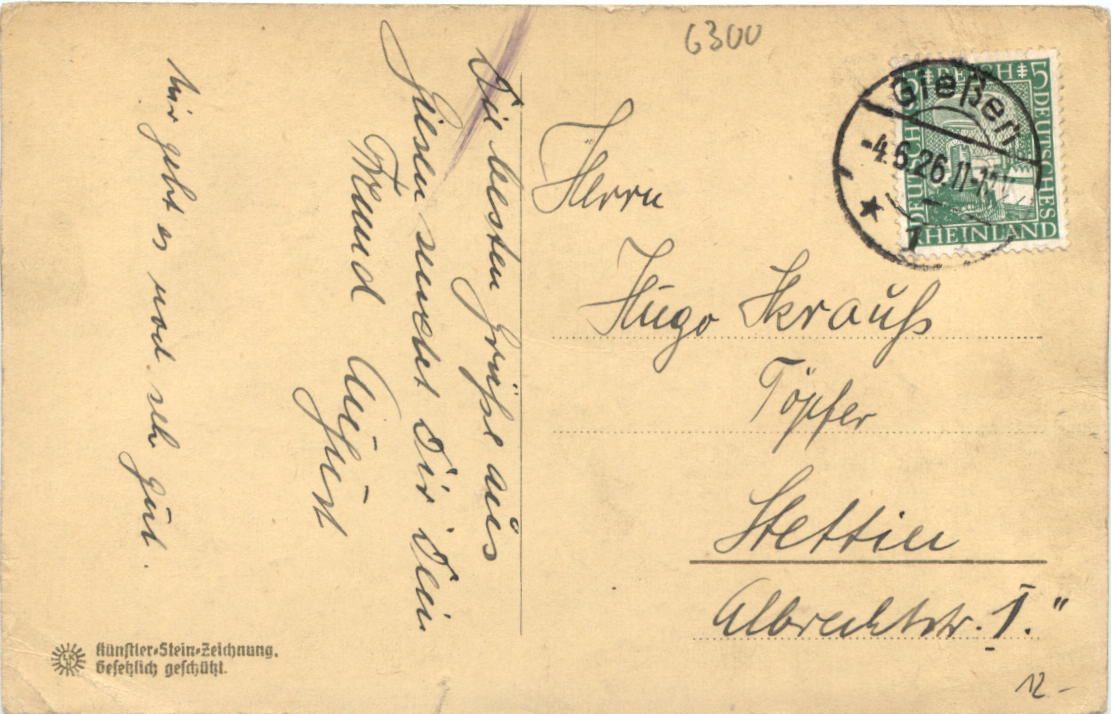 6300
5 DEUTSCHES REICH 5 DEUTSCHES
RHEINLAND
Gießen
-4.6.26.11-12
* 1
Die besten Grüße aus
Giesen sendet Dir Dein
Freund August
Mir geht es noch sehr gut.
Herrn
Hugo Skrauß
Töpfer
Stettin
Albrechtstr. 1."
Künstler-Stein-Zeichnung.
Gesetzlich geschützt.
12-